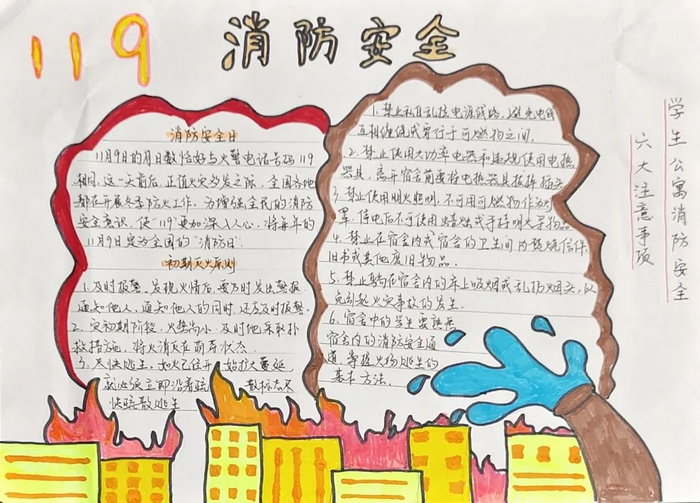 119
消防安全
消防安全日
11月9日的月日数恰好与火警电话号码119
相同,这一天前后,正值火灾多发之际,全国各地
都在开展冬季防火工作。为增强全民的消防
安全意识,使"119"更加深入人心,将每年的
11月9日定为全国的"消防日".
初期灭火原则
1、及时报警,发现火情后,要及时发出警报
通知他人,通知他人的同时,还应及时报警.
2、灾初期阶段,火势尚小,及时他采取扑
救措施,将火消灭在萌芽状态.
3、尽快逃生,如火已任开始扩大蔓延,
就必须立即沿着疏散标志尽
快疏散逃生
1.禁止私自乱拉电源线路,避免电线
互相缠绕或穿行于可燃物之间.
2.禁止使用大功率电器和违规使用电热
器具,离开宿舍前要将电热器具拔掉插头
3.禁止使用明火照明,不可用可燃物作为灯
罩,停电后不可使用蜡烛或手持明火寻物品
4.禁止在宿舍内或宿舍的卫生间内焚烧信件
旧书或其他废旧物品.
5.禁止躺在宿舍内的床上吸烟或乱扔烟头,以
免引起火灾事故的发生.
6.宿舍中的学生要熟悉
宿舍内的消防安全通
道,掌握火场逃生的
基本方法.
学生公寓消防安全
六大注意事项